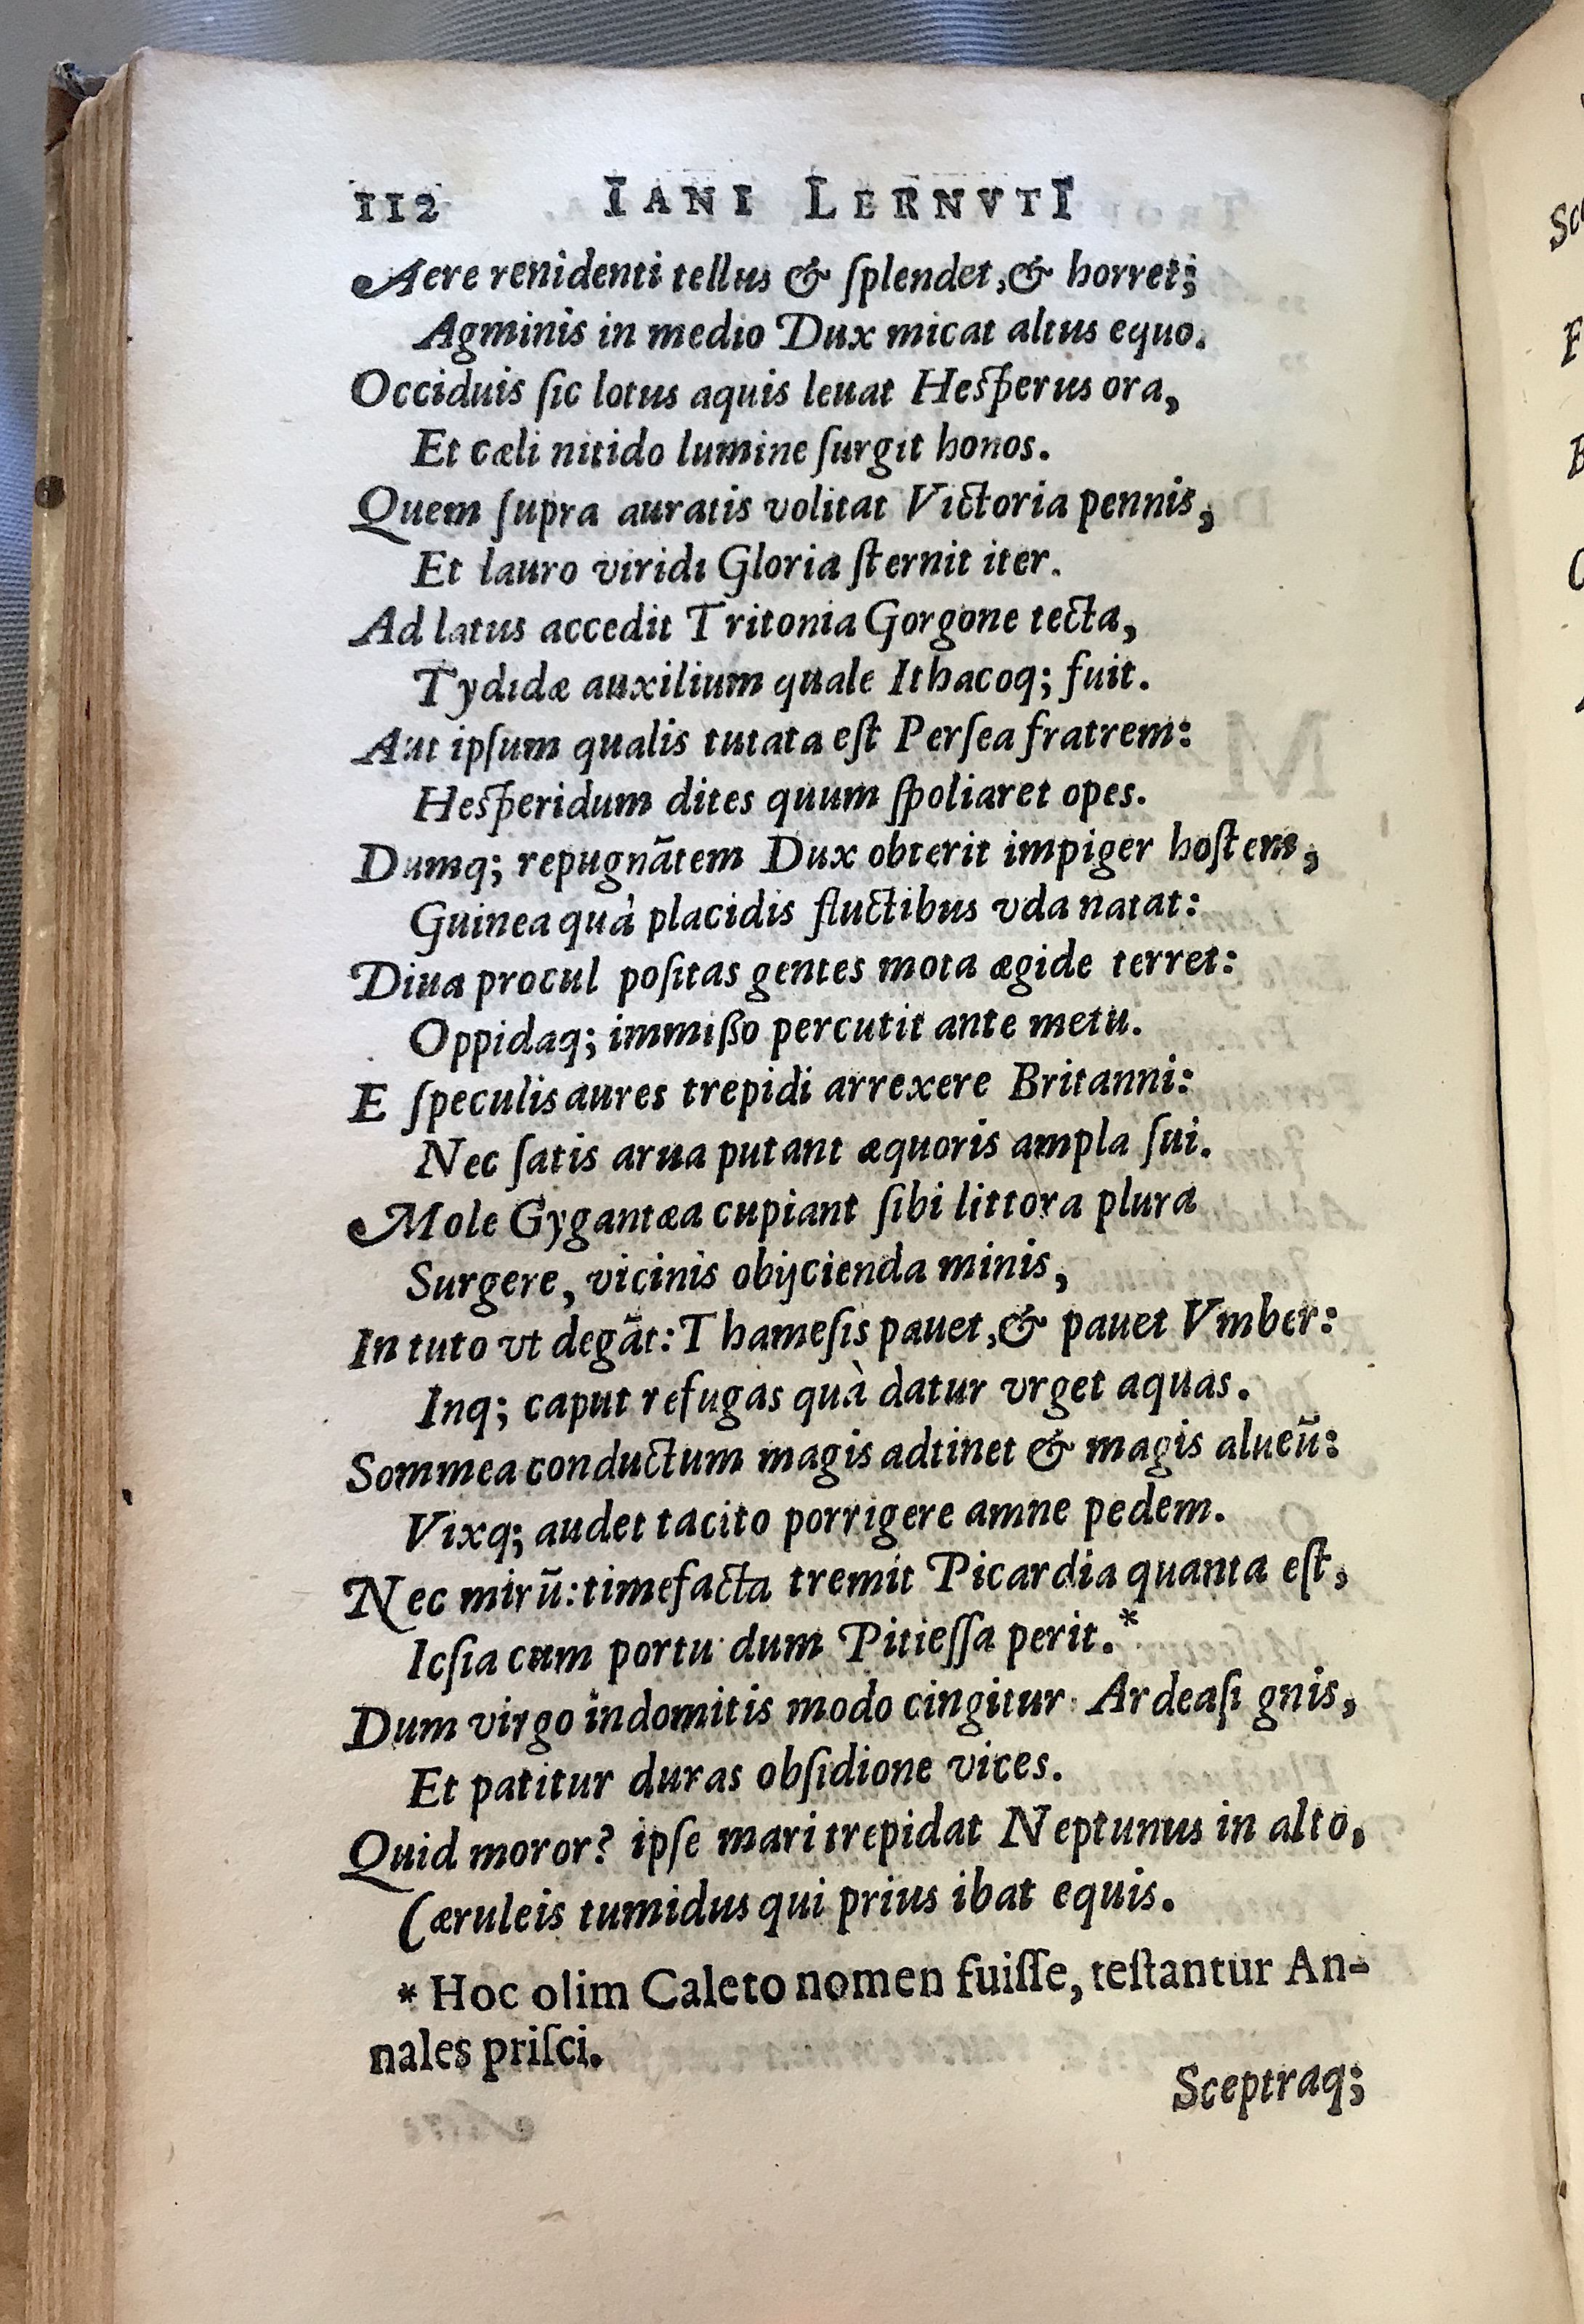 112 IANI LERNVTI
Aere renidenti tellus & ſplendet, & horret;
Agminis in medio Dux micat altus equo.
Occiduis ſic lotus aquis leuat Heſperus ora,
Et cæli nitido lumine ſurgit honos.
Quem ſupra auratis volitat Victoria pennis,
Et lauro viridi Gloria ſternit iter.
Ad latus accedit Tritonia Gorgone tecta,
Tydidæ auxilium quale Ithacoq; fuit.
Aut ipſum qualis tutata eſt Perſea fratrem:
Heſperidum dites quum ſpoliaret opes.
Dumq; repugnãtem Dux obterit impiger hoſtem,
Guinea quà placidis fluctibus vda natat:
Diua procul poſitas gentes mota ægide terret:
Oppidaq; immißo percutit ante metu.
E ſpeculis aures trepidi arrexere Britanni:
Nec ſatis arua putant æquoris ampla ſui.
Mole Gygantæa cupiant ſibi littora plura
Surgere, vicinis obijcienda minis,
In tuto vt degãt: Thameſis pauet, & pauet Vmber:
Inq; caput refugas quà datur vrget aquas.
Sommea conductum magis adtinet & magis alueũ:
Vixq; audet tacito porrigere amne pedem.
Nec mirũ: timefacta tremit Picardia quanta eſt,
Icſia cum portu dum Pitieſſa perit.*
Dum virgo indomitis modo cingitur Ardea ſignis,
Et patitur duras obſidione vices.
Quid moror? ipſe mari trepidat Neptunus in alto,
Cæruleis tumidus qui prius ibat equis.
* Hoc olim Caleto nomen fuiſſe, teſtantur An-
nales priſci.
Sceptraq;